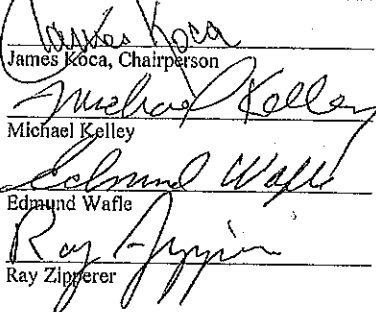 James Koca
James Koca, Chairperson
Michael Kelley
Michael Kelley
Edmund Wafle
Edmund Wafle
Ray Zipperer
Ray Zipperer